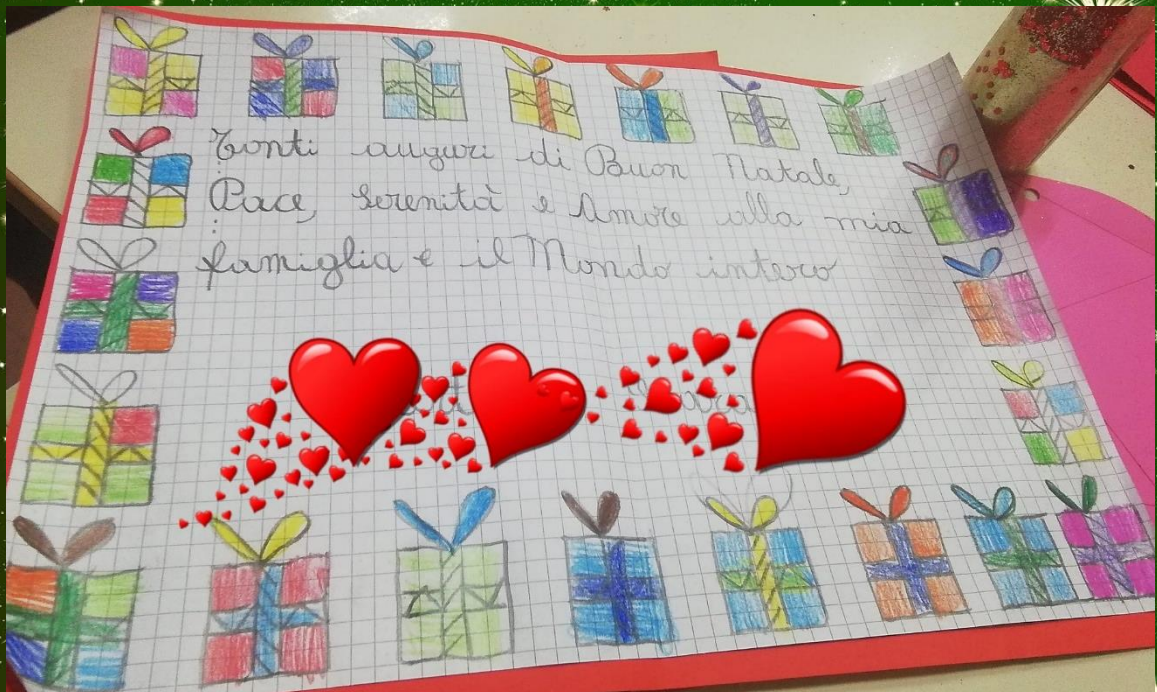 Tanti auguri di Buon Natale,
Pace, serenità e Amore alla mia
famiglia e il Mondo intero